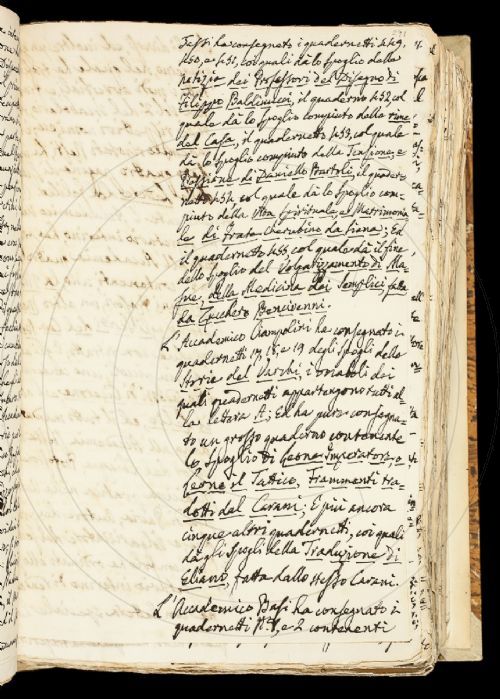 Tessi ha consegnato i quadernetti 449,
450, e 451, coi quali dà lo spoglio delle
notizie dei Professori del Disegno di
Filippo Baldinucci, il quaderno 452, col
quale dà lo Spoglio compiuto delle rime
del Casa, il quadernetto 453, col quale
dà lo Spoglio compiuto della Tensione, e
Pressione di Daniello Bartoli, il quader-
netto 454, col quale dà lo Spoglio com-
piuto della Vita Spirituale, e Matrimonia
le di Frate Cherubino da Siena; Ed
il quadernetto 455 col quale dà il fine
dello spoglio del Volgarizzamento di Ma-
sue, della Medicina dei Semplici fatto
da Zucchero Bencivenni.
L'Accademico Ciampolini ha consegnato i
quadernetti 17, 18, e 19 degli Spogli delle
Storie del Varchi, i vocaboli dei
quali quadernetti appartengono tutti al-
la lettera A; Ed ha pure consegna-
to un grosso quaderno contenente
lo Spoglio di Leone Imperatore, o
Leone il Tattico, Frammenti tra-
dotti dal Carani; E più ancora
cinque altri quadernetti, coi quali
dà gli Spogli della Traduzione di
Eliano, fatta dallo stesso Carani.
L'Accademico Basi ha consegnato i
quadernetti Nⁱ 1, e 2 contenenti